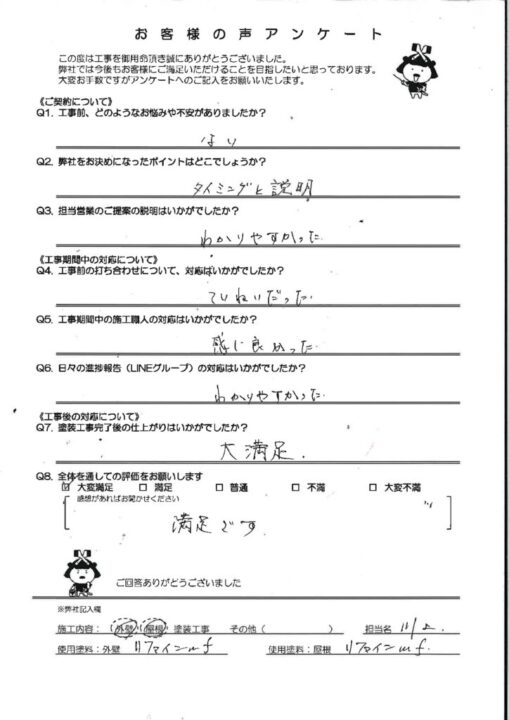 お客様の声アンケート
この度は工事を御用命頂き誠にありがとうございました。
弊社では今後もお客様にご満足いただけることを目指したいと思っております。
大変お手数ですがアンケートへのご記入をお願いいたします。
《ご契約について》
Q1. 工事前、どのようなお悩みや不安がありましたか?
はい
Q2. 弊社をお決めになったポイントはどこでしょうか?
タイミングと説明
Q3. 担当営業のご提案の説明はいかがでしたか?
わかりやすかった
《工事期間中の対応について》
Q4. 工事前の打ち合わせについて、対応はいかがでしたか?
ていねいだった.
Q5. 工事期間中の施工職人の対応はいかがでしたか?
感じ良かった
Q6. 日々の進捗報告(LINEグループ)の対応はいかがでしたか?
わかりやすかった
《工事後の対応について》
Q7. 塗装工事完了後の仕上がりはいかがでしたか?
大満足.
Q8. 全体を通しての評価をお願いします
☑ 大変満足 □ 満足 □ 普通 □ 不満 □ 大変不満
感想があればお聞かせください
満足です
ご回答ありがとうございました
※弊社記入欄
施工内容:(外壁・屋根)塗装工事 その他( ) 担当名
使用塗料:外壁 リファインmf 使用塗料:屋根 リファインmf.